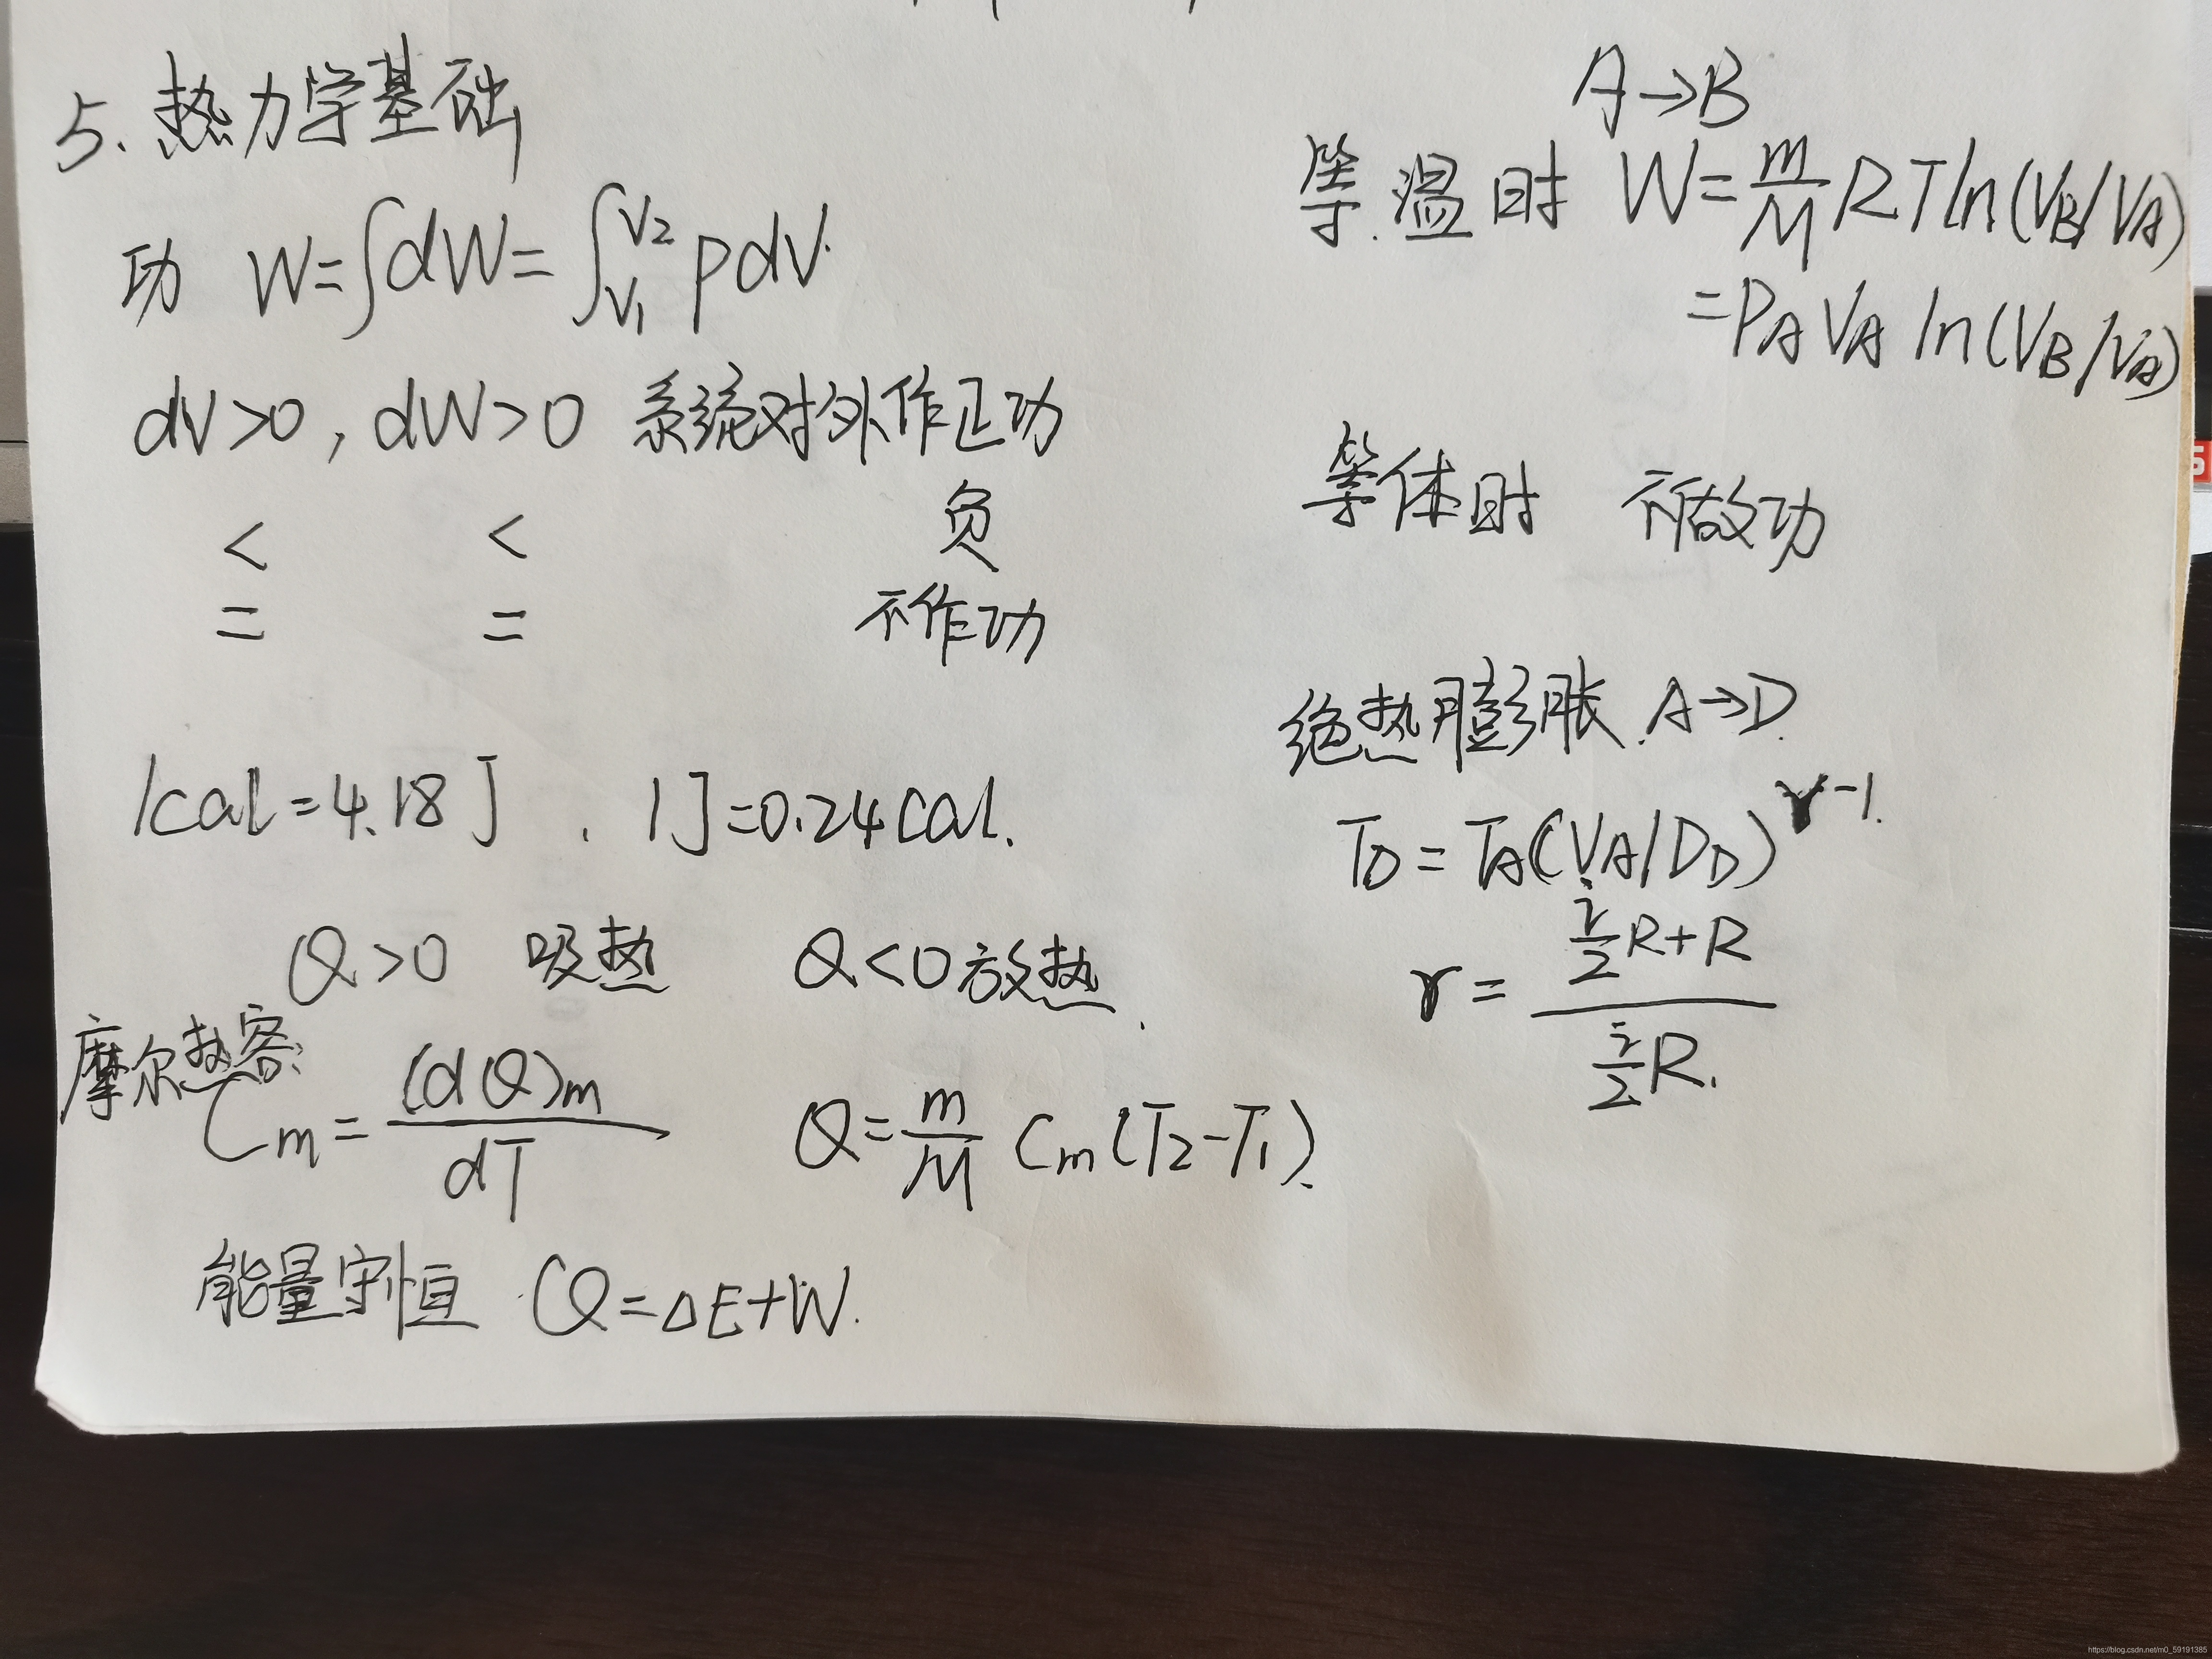 5. 热力学基础
功 W=∫dW=∫_{V1}^{V2} pdV.
dV>0, dW>0 系统对外作正功
< < 负
= = 不作功
1cal=4.18J , 1J=0.24cal.
Q>0 吸热 Q<0 放热.
摩尔热容:
Cm=(dQ)m/dT Q=m/M Cm(T2-T1).
能量守恒 Q=ΔE+W.
A→B
等温时 W=m/M RTln(VB/VA)
=PAVA ln(VB/VA)
等体时 不做功
绝热膨胀 A→D.
TD=TA(VA/DD)^{γ-1}.
γ=(i/2 R+R)/(i/2 R).
5
https://blog.csdn.net/m0_59191385